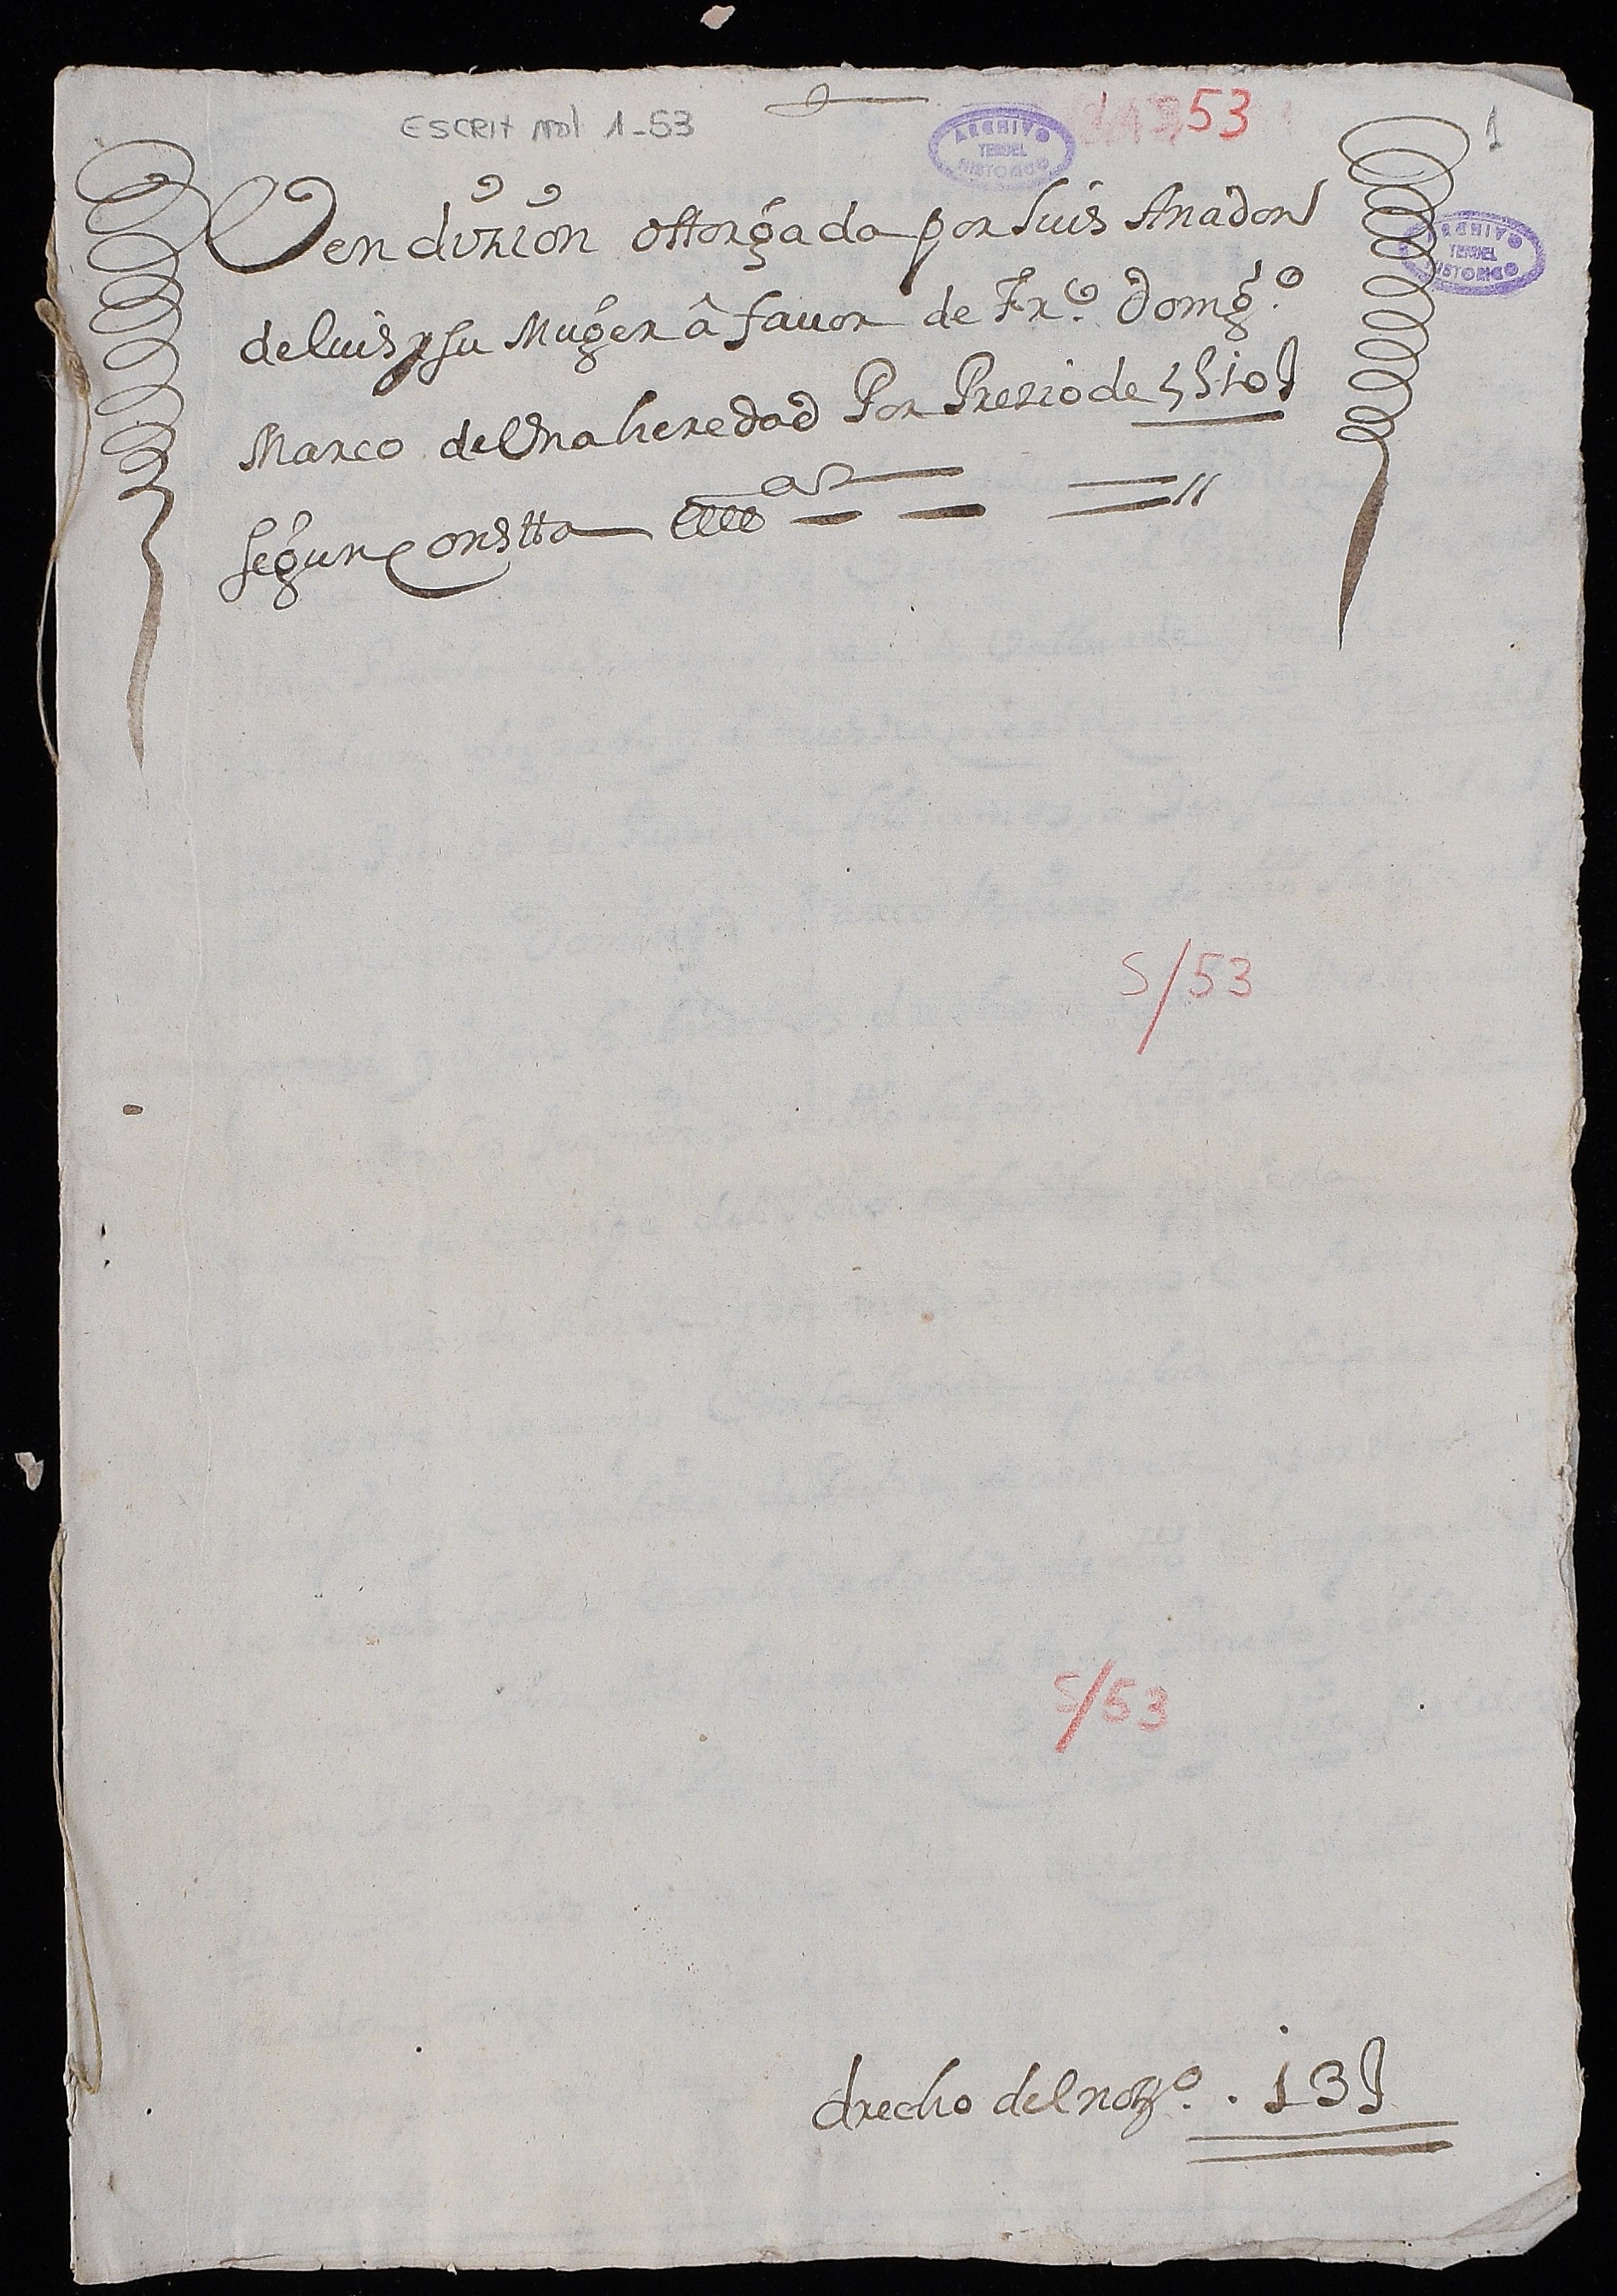 ESCRIT Nol 1-53
53
1
ARCHIVO
TERUEL
HISTORICO
ARCHIVO
TERUEL
HISTORICO
Vendizion ottorgada por Luis Anadon
de luis y su Muger â fauor de Frco. Domgo.
Marco de Una heredad Por Prezio de
segun Constta
S/53
S/53
drecho del noto. . 13 s